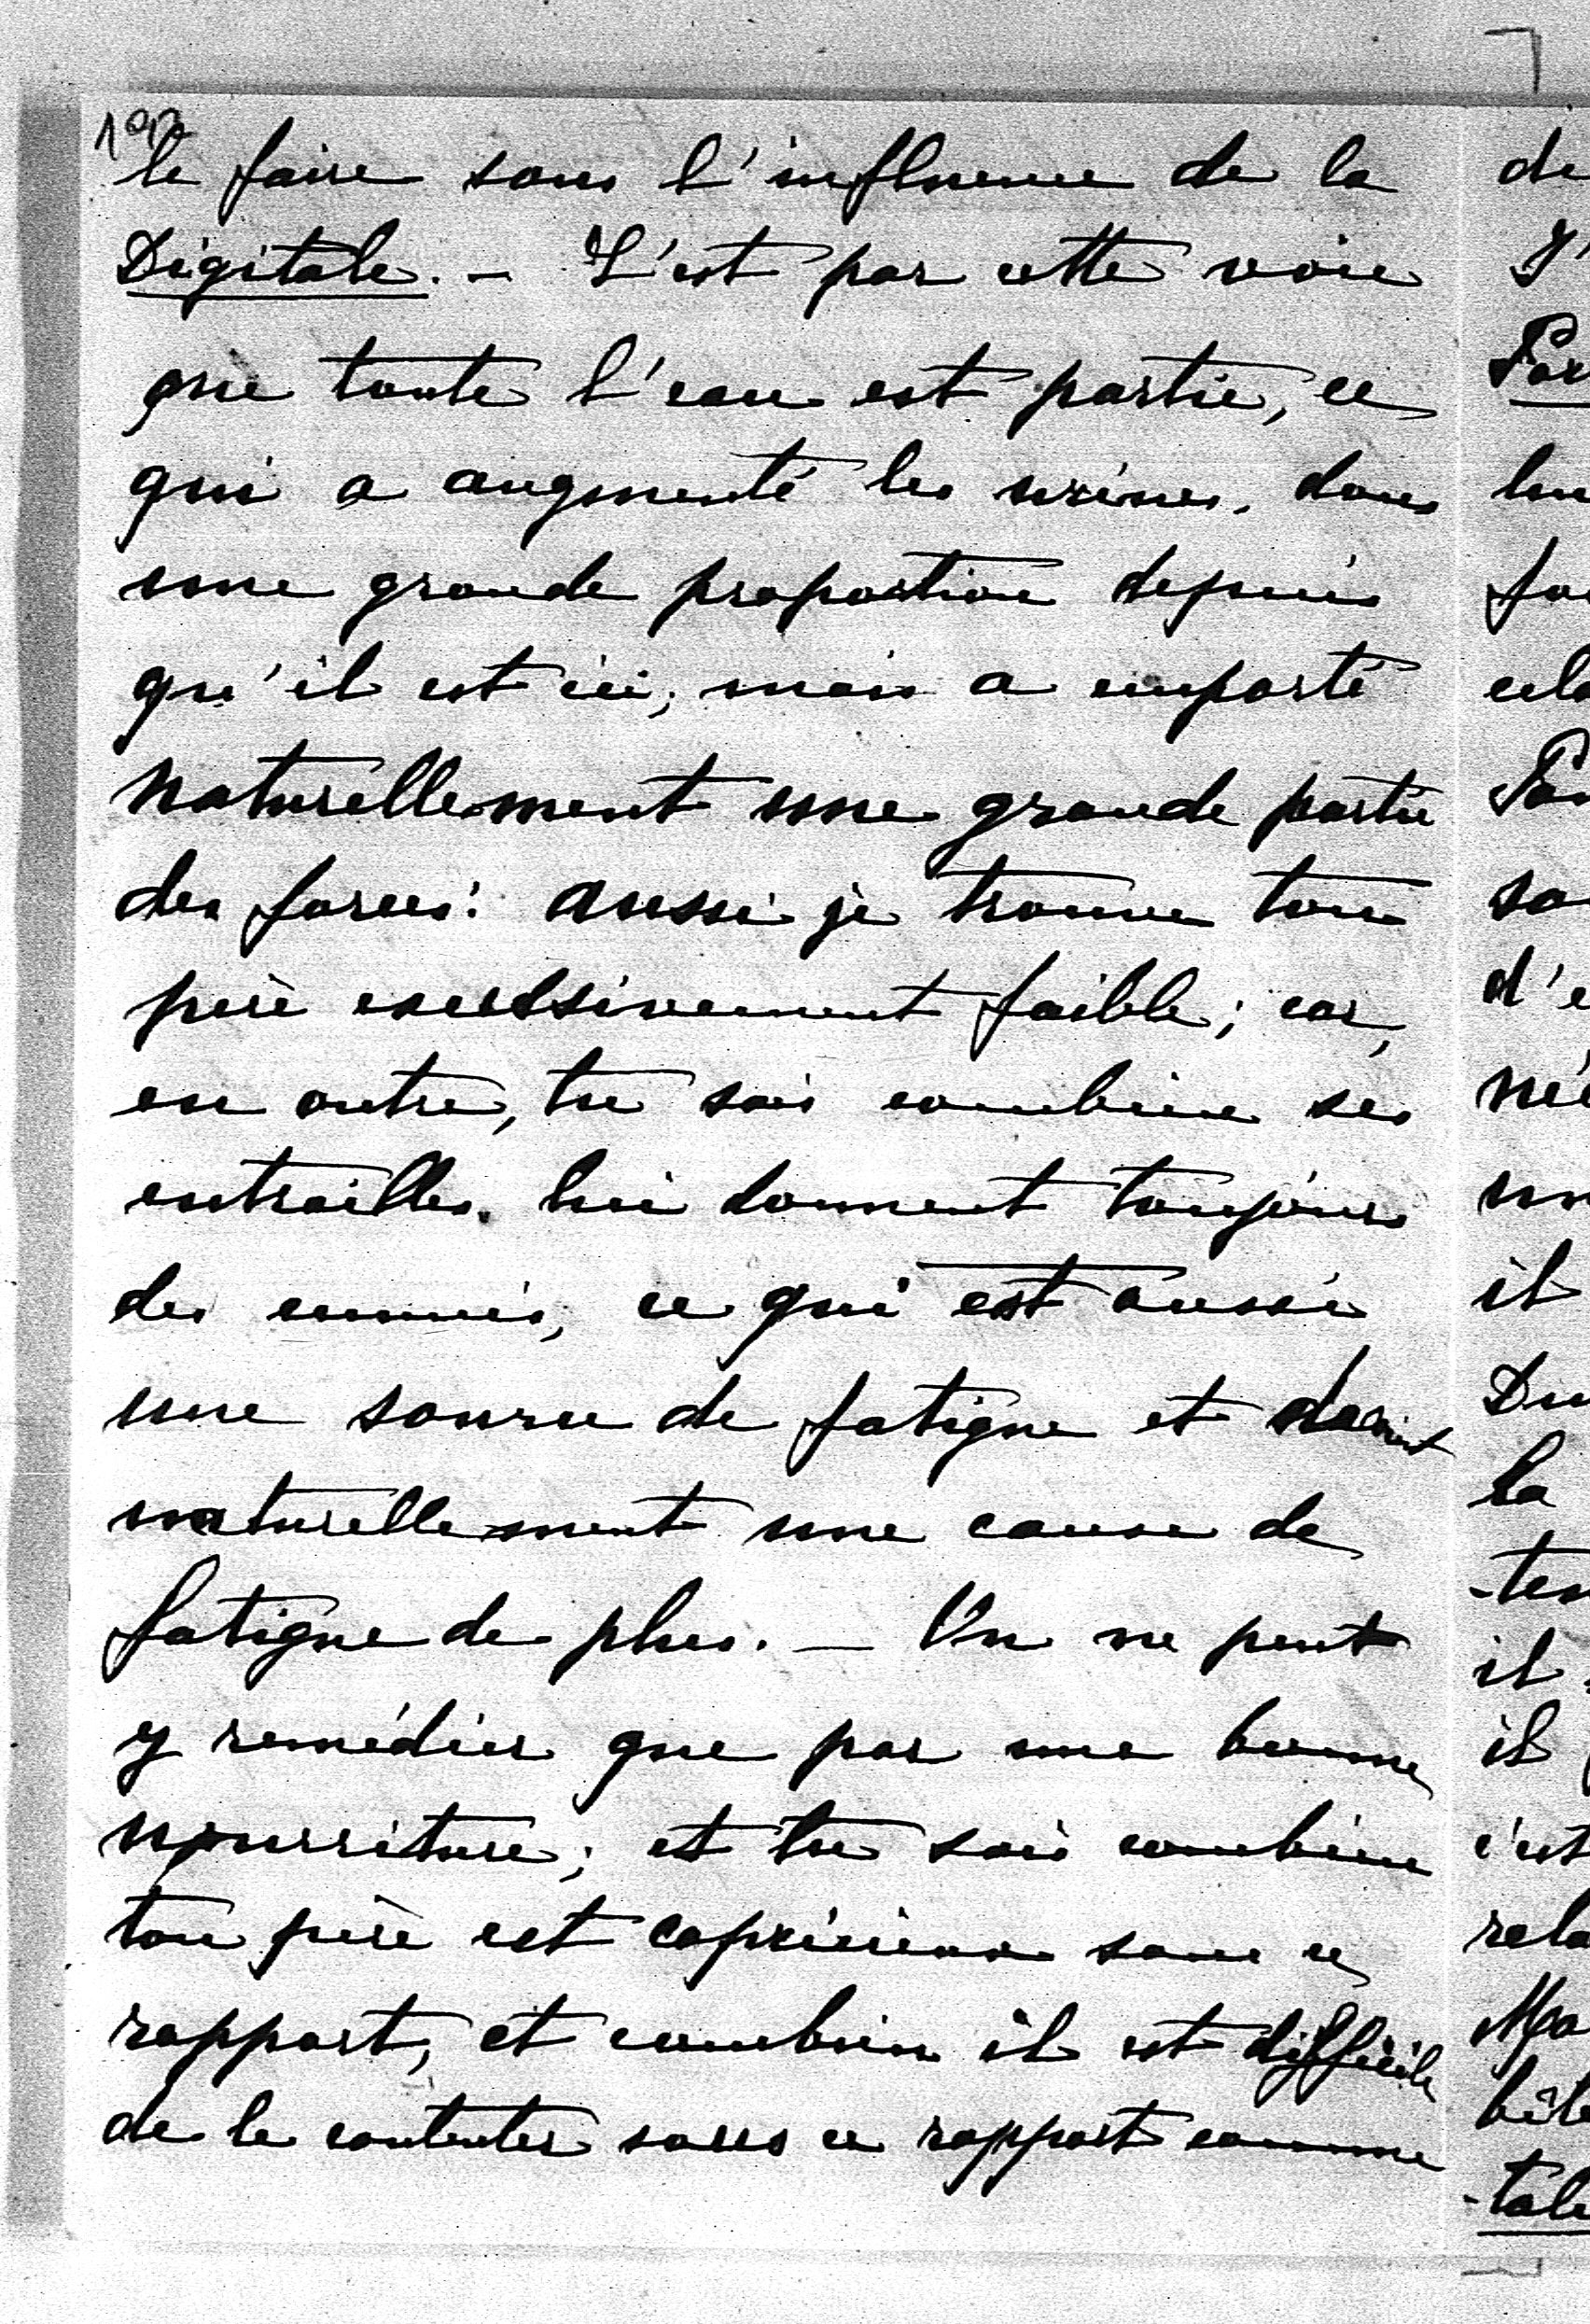 le faire sous l'influence de la
Digitale. - C'est par cette voie
que toute l'eau est partie, ce
qui a augmenté les urines, dans
une grande proportion depuis
qu'il est ici; mais a emporté
naturellement une grande partie
des forces: aussi je trouve ton
père excessivement faible; car,
en outre, tu sais combien ses
entrailles lui donnent toujours
des ennuis, ce qui est aussi
une source de fatigue et devient
naturellement une cause de
fatigue de plus. — On ne peut
y remédier que par une bonne
nourriture; et tu sais combien
ton père est capricieux sous ce
rapport, et combien il est difficile
de le contenter sous ce rapport comme
de
J'
Par
leu
fai
cela
Par
sa
d'e
née
un
il
Du
la
-ten
il
il
c'est
rela
Ma
bête
-tale